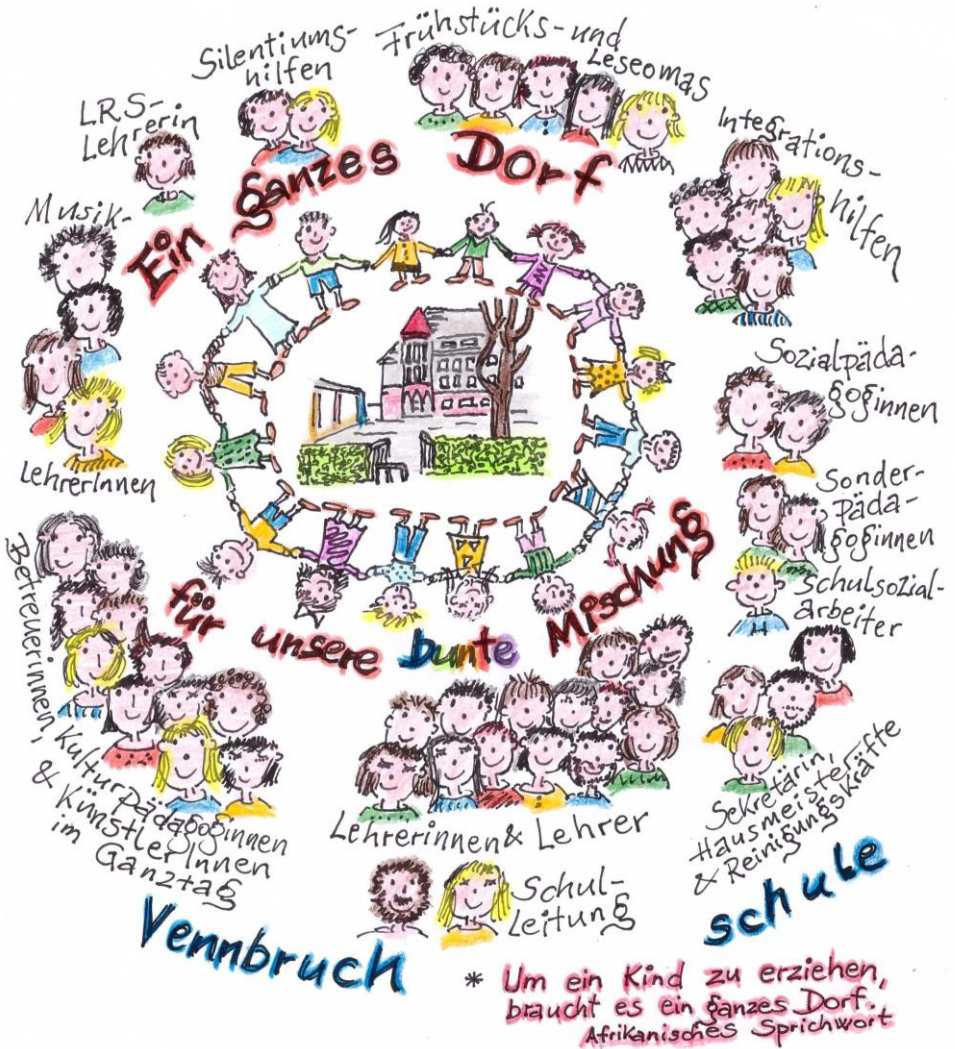 Silentiums-
hilfen
Frühstücks- und
Leseomas
LRS-
Lehrerin
Integrations-
hilfen
Musik-
LehrerInnen
Ein ganzes Dorf
Sozialpäda-
goginnen
Sonder-
päda-
goginnen
Schulsozial-
arbeiter
für unsere bunte Mischung
Betreuerinnen,
Kulturpädagoginnen
& KünstlerInnen
im Ganztag
Lehrerinnen & Lehrer
Sekretärin,
Hausmeisterkräfte
& Reinigungskräfte
Schul-
Leitung
Vennbruch
schule
* Um ein Kind zu erziehen,
braucht es ein ganzes Dorf.
Afrikanisches Sprichwort